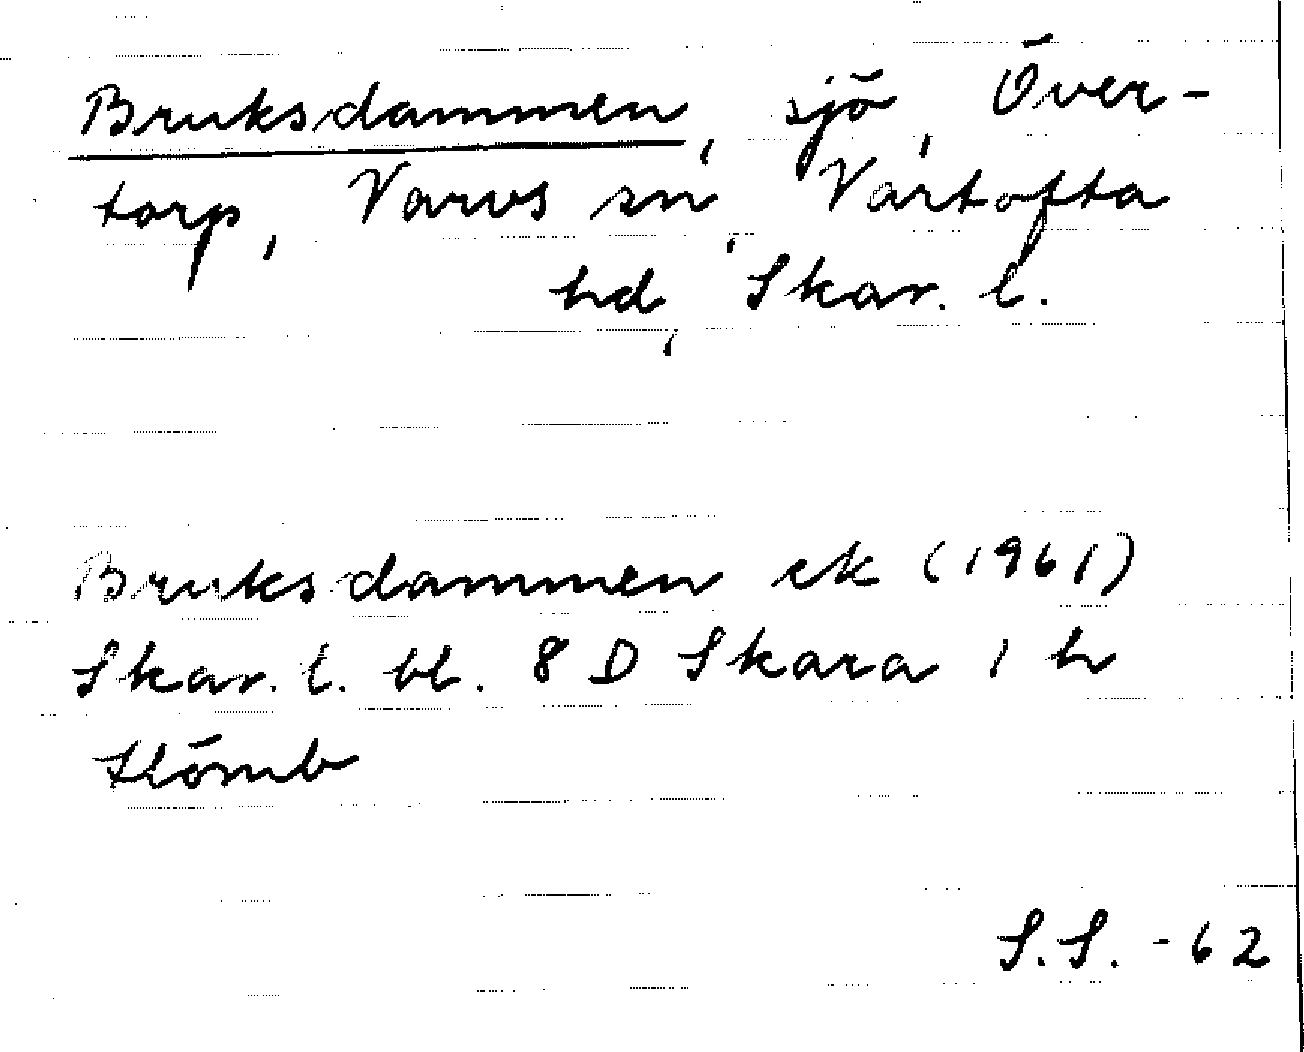 Bruksdammen, sjö, Över-
torp, Varvs sn, Vartofta
hd, Skar. l.
Bruksdammen ek (1961)
Skar. l. bl. 8 D Skara 1 h
Klömb
S.S. -62